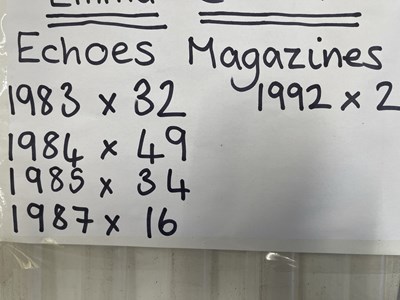 Echoes Magazines
1983 x 32 1992 x 2
1984 x 49
1985 x 34
1987 x 16